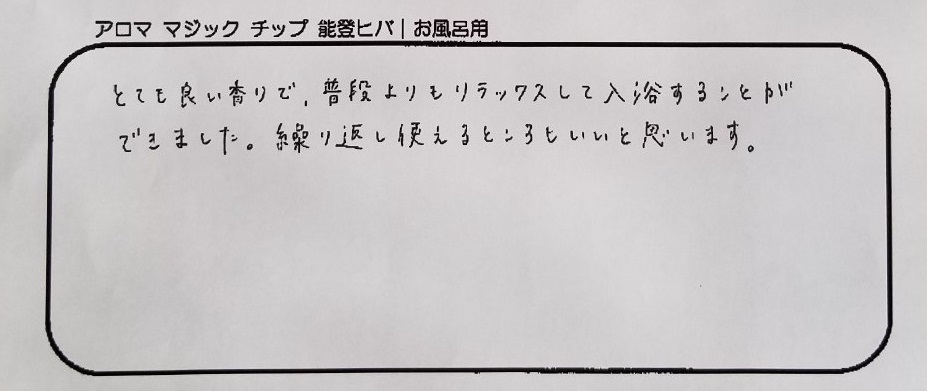 アロマ マジック チップ 能登ヒバ｜お風呂用
とても良い香りで、普段よりもリラックスして入浴することが
できました。繰り返し使えるところもいいと思います。